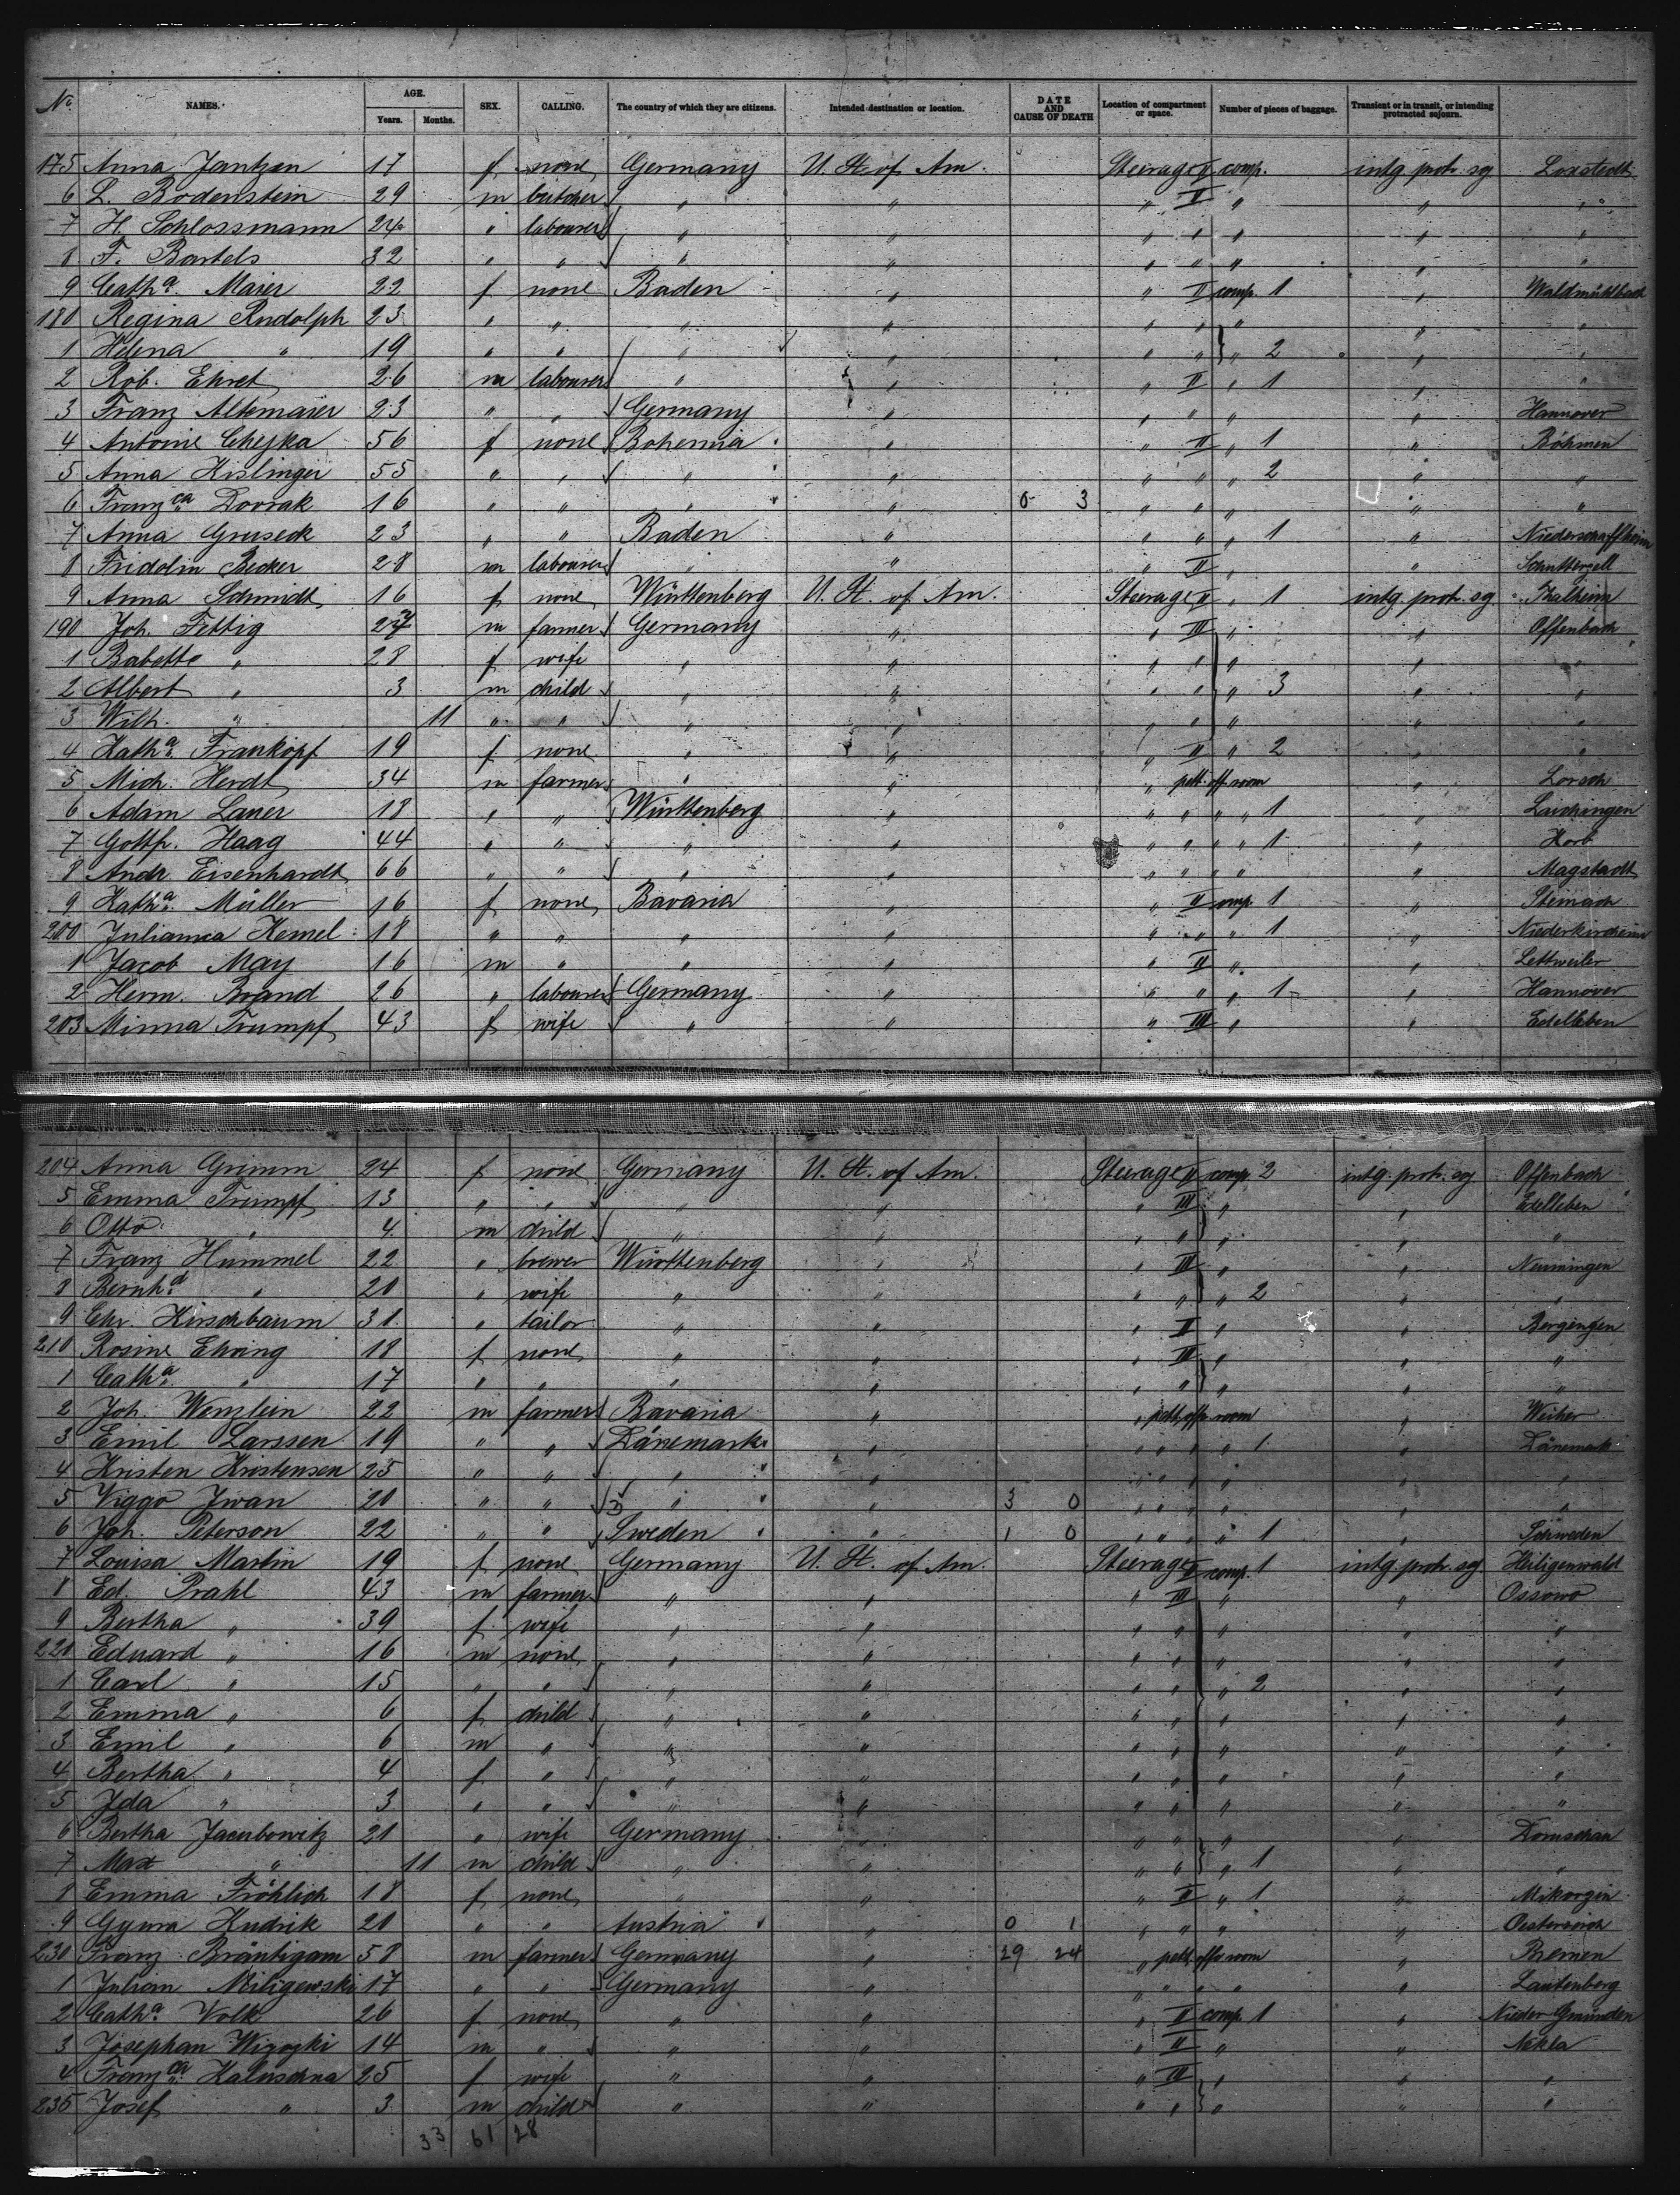 No. NAMES. AGE. Years. Months. SEX. CALLING. The country of which they are citizens. Intended destination or location. DATE AND CAUSE OF DEATH Location of compartment or space. Number of pieces of baggage. Transient or in transit, or intending protracted sojourn.
175 Anna Jantzen 17 f none Germany U. St. of Am. Steerage II comp. intg prot. sg Loxstedt
6 L. Bodenstein 29 m butcher " " " II " " "
7 H. Schlossmann 24 " labourer " " " " " " "
8 F. Bartels 32 " " " " " " " " "
9 Catha. Maier 22 f none Baden " " II comp. 1 " Waldmühlbach
180 Regina Rudolph 23 " " " " " " " " "
1 Helena " 19 " " " " " " " 2 " "
2 Rob. Ehret 26 m labourer " " " II " 1 " "
3 Franz Altemaier 23 " " Germany " " " " " Hannover
4 Antonie Chejka 56 f none Bohemia " " II " 1 " Böhmen
5 Anna Kislinger 55 " " " " " " 2 " "
6 Franzca Dovrak 16 " " " " 0 3 " " " " "
7 Anna Gruseck 23 " " Baden " " " " 1 "
8 Fridolin Becker 28 m labourer " " " II " " Schutterzell
9 Anna Schmidt 16 f none Württenberg U. St. of Am. Steerage II " 1 intg. prot. sg. Thalheim
190 Joh. Fettig 27 m farmer Germany " " III " " Offenbach
1 Babette " 28 f wife " " " " " " "
2 Albert " 3 m child " " " " " 3 " "
3 Wilh. " 11 " " " " " " " " "
4 Katha. Frankopf 19 f none " " " II " 2 " "
5 Mich. Herdt 34 m farmer " " " pett. off. room " Lorsch
6 Adam Lauer 18 " " Württenberg " " " " " 1 " Laichingen
7 Gottfr. Haag 44 " " " " " " " " 1 " Korb
8 Andr. Eisenhardt 66 " " " " " " " " " Magstadt
9 Katha. Müller 16 f none Bavaria " " II comp. 1 " Steinach
200 Julianna Kemel 18 " " " " " " " 1 " Niederkirchen
1 Jacob May 16 m " " " " II " " Lettweiler
2 Herm. Brand 26 " labourer Germany " " " " 1 " Hannover
203 Minna Trumpf 43 f wife " " " III " " Edelleben
204 Anna Grimm 24 f none Germany U. St. of Am. Steerage II comp. 2 intg. prot. sg Offenbach
5 Emma Trumpf 13 " " " " " III " " Edelleben
6 Otto " 4 m child " " " " " " "
7 Franz Hummel 22 " brewer Württenberg " " III " " Neuningen
8 Bernhd. " 20 " wife " " " " " 2 " "
9 Chr. Kirschbaum 31 " tailor " " " II " " Bergingen
210 Rosine Ehving 18 f none " " " III " " "
1 Catha. " 17 " " " " " " " " "
2 Joh. Wenzlein 22 m farmer Bavaria " " pett. offs room " Weiher
3 Emil Larssen 19 " " Dänemark " " " " " 1 " Dänemark
4 Kristen Kristensen 25 " " " " " " " " " "
5 Viggo Jwan 20 " " " " 3 0 " " " " " "
6 Joh. Peterson 22 " " Sweden " 1 0 " " " " 1 " Schweden
7 Louisa Martin 19 f none Germany U. St. of Am. Steerage II comp. 1 intg. prot. sg Heiligenwald
8 Ed. Prahl 43 m farmer " " " III " " Ossowo
9 Bertha " 39 f wife " " " " " " "
220 Eduard " 16 m none " " " " " " "
1 Carl " 15 " " " " " " " 2 " "
2 Emma " 6 f child " " " " " " "
3 Emil " 6 m " " " " " " " "
4 Bertha " 4 f " " " " " " " "
5 Ida " 3 " " " " " " " " "
6 Bertha Jacubowitz 21 " wife Germany " " " " " Domschau
7 Max " 11 m child " " " " " 1 " "
8 Emma Fröhlich 18 f none " " " II " 1 " Mikorzin
9 Gyura Kudrik 20 " " Austria " 0 1 " " " " Oesterreich
230 Franz Bräutigam 58 m farmer Germany " 29 24 " pett. offs room " Bremen
1 Julian Miligewski 17 " " Germany " " " " " " Lautenberg
2 Catha. Volk 26 f none " " " II comp. 1 " Nieder Gmünden
3 Josephan 14 m " " " " II " " Nekla
4 Franzca. Haluschna 25 f wife " " " III " " "
235 Josef " 3 m child " " " " " " "
33 61 28